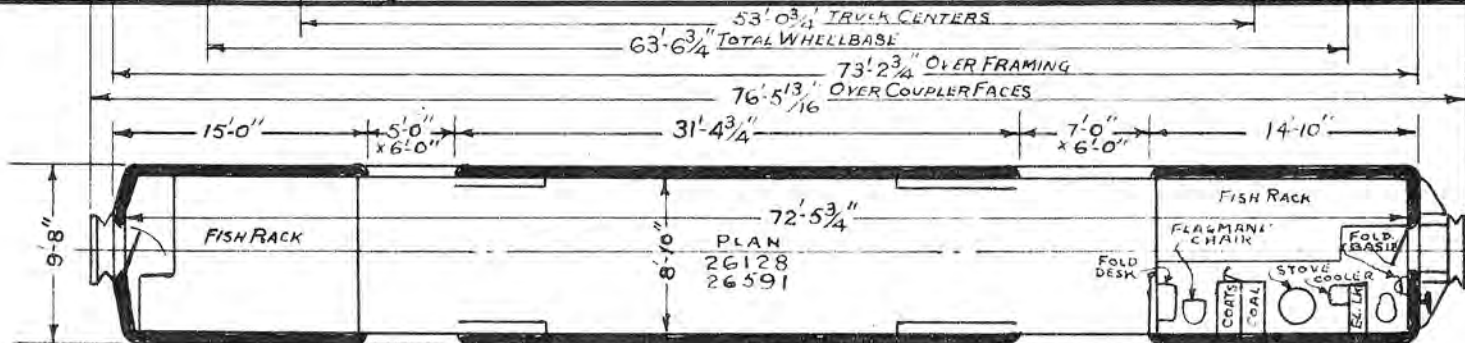 53'-0¾" TRUCK CENTERS
63'-6¾" TOTAL WHELLBASE
73'-2¾" OVER FRAMING
76'-5 13/16" OVER COUPLER FACES
15'-0" 5'-0" x 6'-0" 31'-4¾" 7'-0" x 6'-0" 14'-10"
9'-8"
FISH RACK
72'-5¾"
8'-10"
PLAN
26128
26591
FISH RACK
FLAGMAN'
CHAIR
FOLD
DESK
COATS
COAL
STOVE
COOLER
FOLD.
BASIN
EL. LK